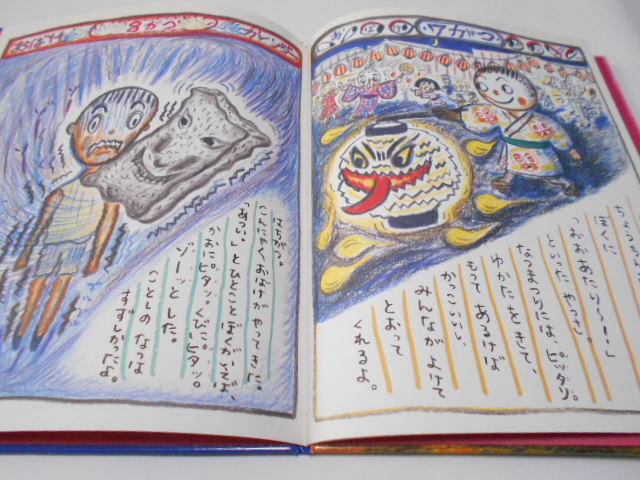 7がつ
ぼくに
「おおあたり〜!」
といったやつさ。
なつまつりには、ピッタリ。
ゆかたをきて、
もってあるけば
かっこいいし、
みんながよけて
とおって
くれるよ。
おばけ
8がつ
カレンダー
はちがつ。
こんにゃくおばけがやってきた。
「あっ。」とひとことぼくがいえば、
かおに。ピタッ。くびに。ピタッ。
ゾーッとした。
ことしのなつは
すずしかったよ。